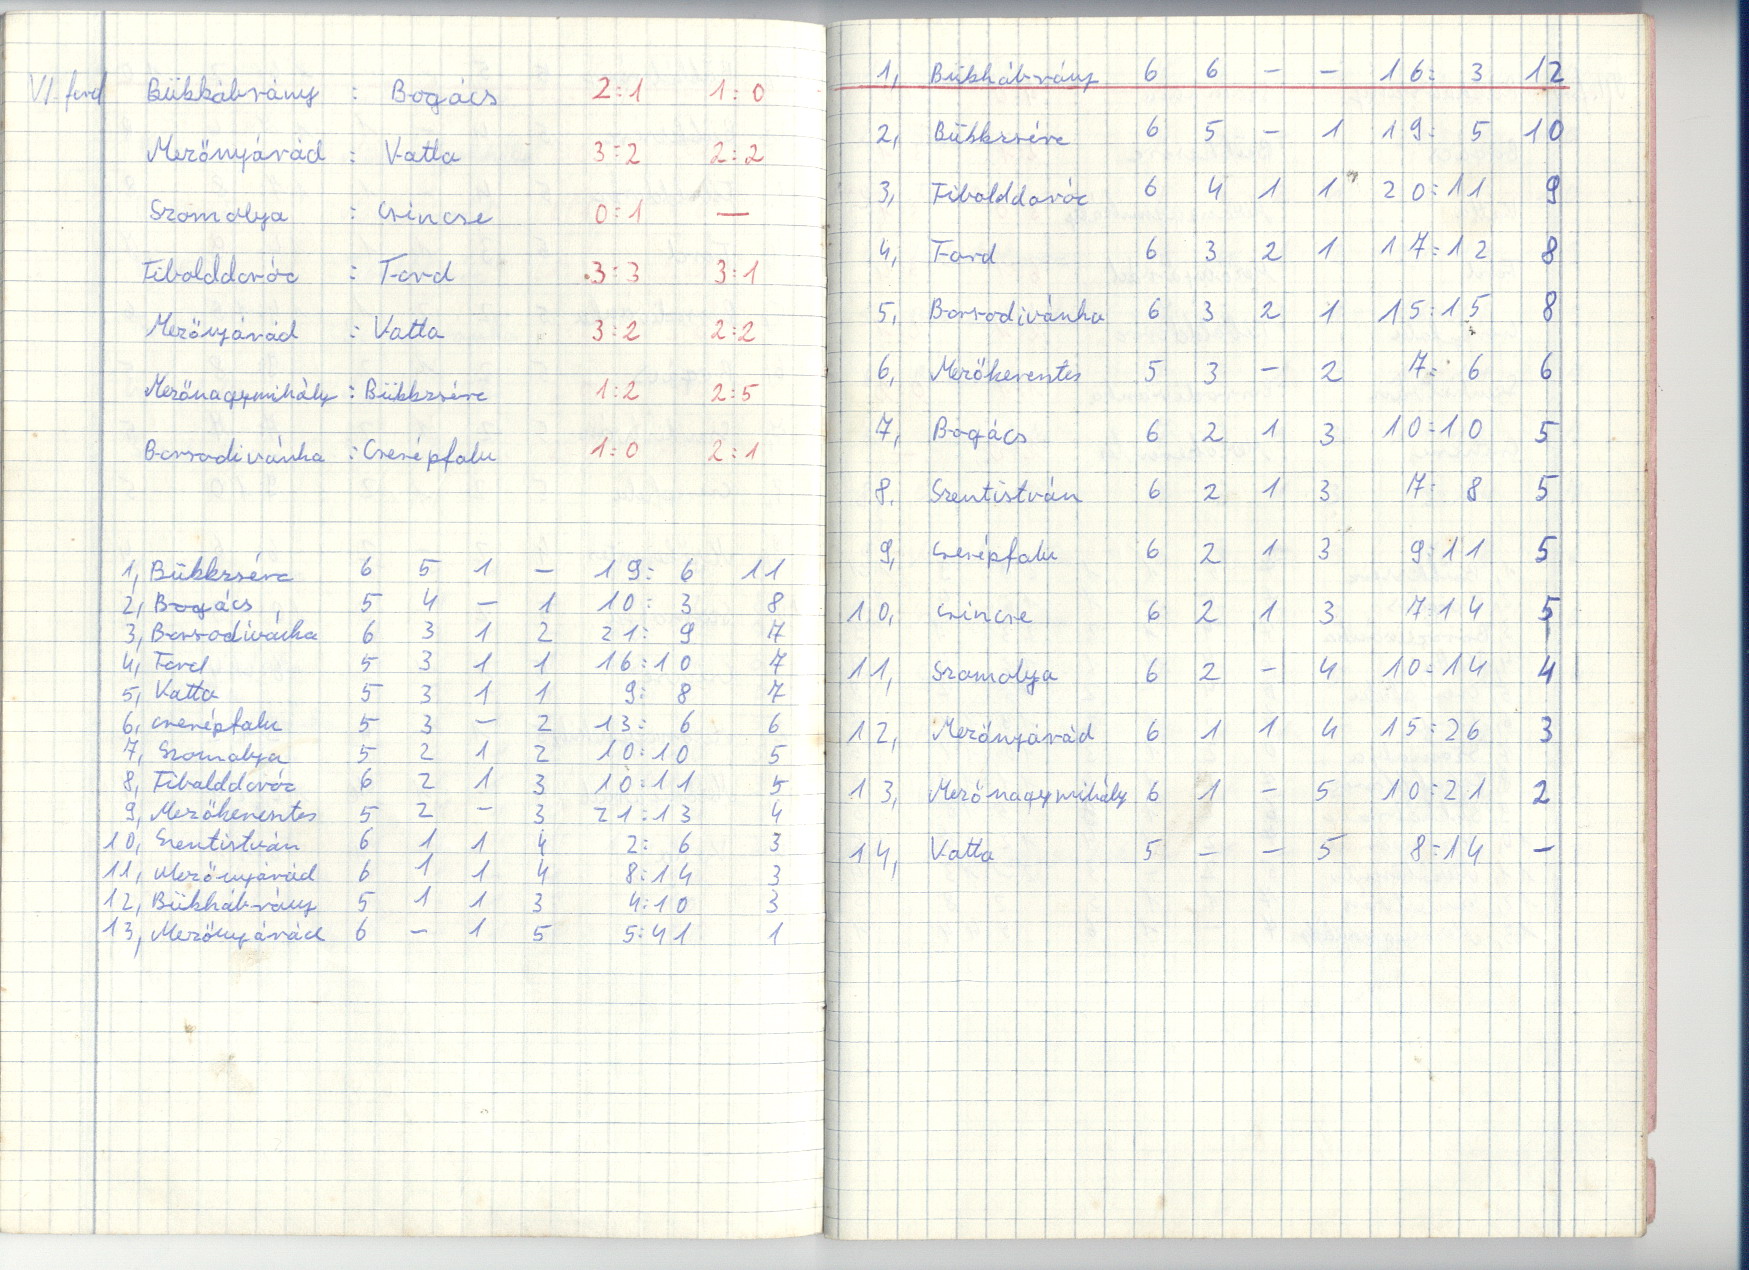 VI. ford Bükkábrány : Bogács 2:1 1:0
Mezőnyárád : Vatta 3:2 2:2
Szomolya : Csincse 0:1 —
Tibolddaróc : Tard 3:3 3:1
Mezőnyárád : Vatta 3:2 2:2
Mezőnagymihály : Bükkzsérc 1:2 2:5
Borsodivánka : Cserépfalu 1:0 2:1
1, Bükkzsérc 6 5 1 – 19: 6 11
2, Bogács 5 4 – 1 10: 3 8
3, Borsodivánka 6 3 1 2 21: 9 7
4, Tard 5 3 1 1 16:10 7
5, Vatta 5 3 1 1 9: 8 7
6, Cserépfalu 5 3 – 2 13: 6 6
7, Szomolya 5 2 1 2 10:10 5
8, Tibolddaróc 6 2 1 3 10:11 5
9, Mezőkeresztes 5 2 – 3 21:13 4
10, Szentistván 6 1 1 4 2: 6 3
11, Mezőnyárád 6 1 1 4 8:14 3
12, Bükkábrány 5 1 1 3 4:10 3
13, Mezőnyárád 6 – 1 5 5:41 1
1, Bükkábrány 6 6 – – 16: 3 12
2, Bükkzsérc 6 5 – 1 19: 5 10
3, Tibolddaróc 6 4 1 1 20:11 9
4, Tard 6 3 2 1 17:12 8
5, Borsodivánka 6 3 2 1 15:15 8
6, Mezőkeresztes 5 3 – 2 7: 6 6
7, Bogács 6 2 1 3 10:10 5
8, Szentistván 6 2 1 3 7: 8 5
9, Cserépfalu 6 2 1 3 9:11 5
10, Csincse 6 2 1 3 7:14 5
11, Szomolya 6 2 – 4 10:14 4
12, Mezőnyárád 6 1 1 4 15:26 3
13, Mezőnagymihály 6 1 – 5 10:21 2
14, Vatta 5 – – 5 8:14 –